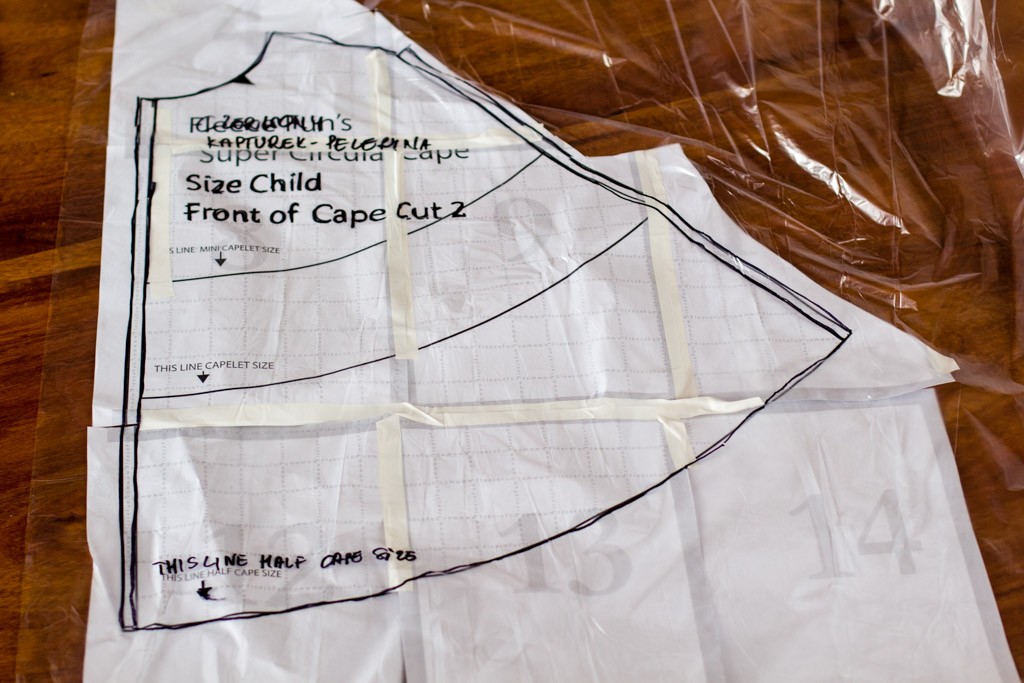 Fleece Fun's
KAPTUREK - PELERYNA
Super Circular Cape
Size Child
Front of Cape Cut 2
9
S LINE MINI CAPELET SIZE
THIS LINE CAPELET SIZE
THIS LINE HALF CAPE SIZE
THIS LINE HALF CAPE SIZE
13
14